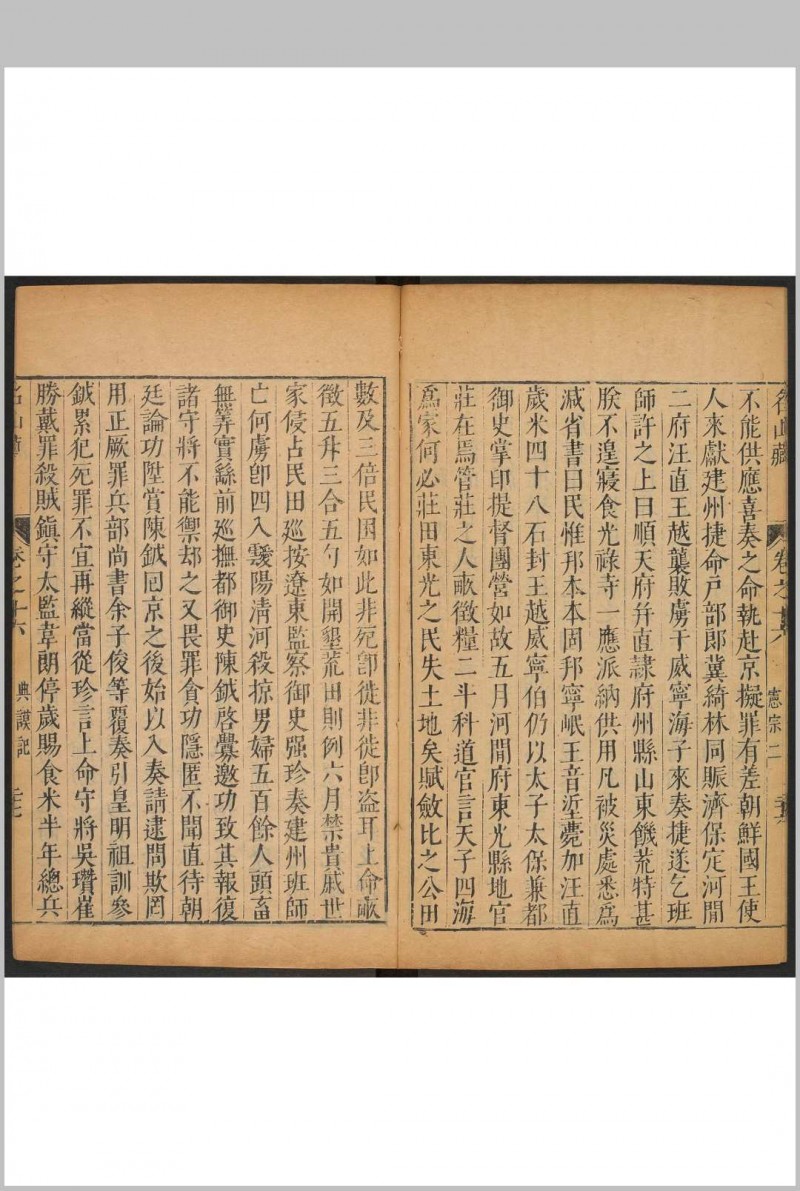 名山藏 卷之十六 憲宗二
不能供應喜奏之命執赴京擬罪有差朝鮮國王使
人來獻建州捷命戶部郎冀綺林同賑濟保定河間
二府汪直王越襲敗虜于威寧海子來奏捷遂乞班
師許之上曰順天府幷直隷府州縣山東饑荒特甚
朕不遑寢食光祿寺一應派納供用凡被災處悉爲
減省書曰民惟邦本本固邦寧岷王音坖薨加汪直
歲米四十八石封王越威寧伯仍以太子太保兼都
御史掌印提督團營如故五月河間府東光縣地官
莊在焉管莊之人畝徵糧二斗科道官言天子四海
爲家何必莊田東光之民失土地矣賦斂比之公田
數及三倍民困如此非死卽徙非徙卽盗耳上命畝
徵五升三合五勺如開墾荒田則例六月禁貴戚世
家侵占民田巡按遼東監察御史强珍奏建州班師
亡何虜卽四入靉陽淸河殺掠男婦五百餘人頭畜
無筭實繇前巡撫都御史陳鉞啓釁邀功致其報復
諸守將不能禦却之又畏罪貪功隱匿不聞直待朝
廷論功陞賞陳鉞囘京之後始以入奏請逮問欺罔
用正厥罪兵部尚書余子俊等覆奏引皇明祖訓參
鉞累犯死罪不宜再縱當從珍言上命守將吳瓚崔
勝戴罪殺賊鎭守太監韋朗停歲賜食米半年總兵
名山藏 卷之十六 典謨記